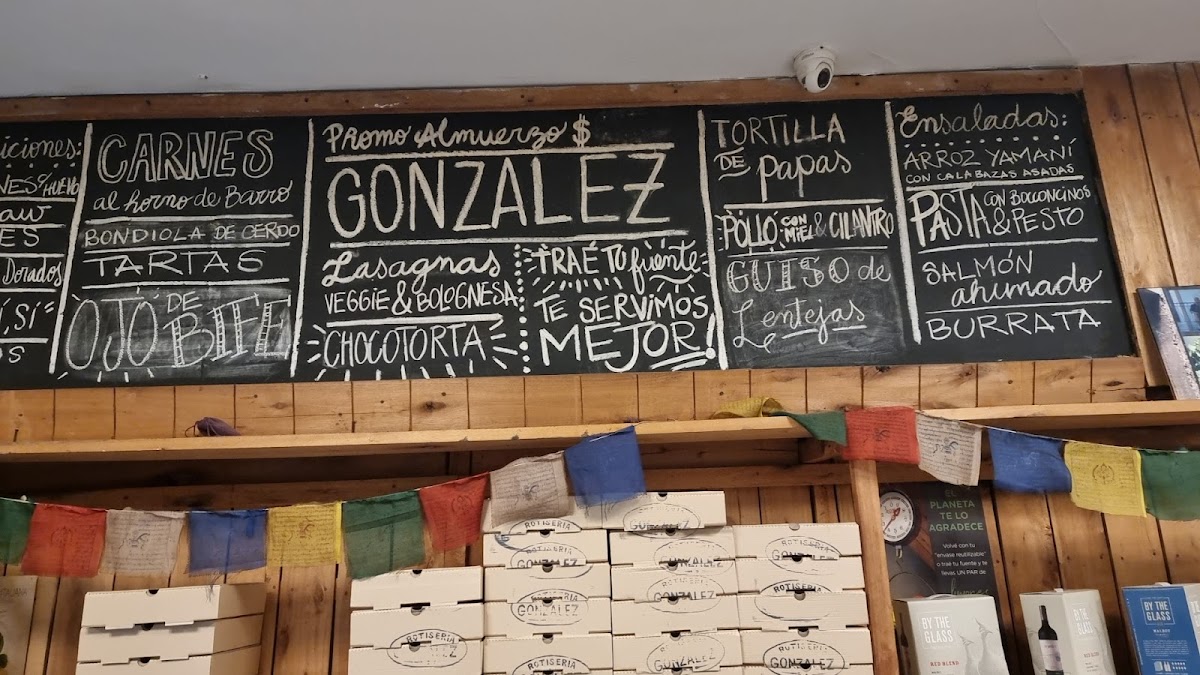 iciones:
NES c/HUEVO
aw
ES
Dorados
í, sí
s
CARNES
al horno de Barro
BONDIOLA DE CERDO
TARTAS
OJO DE BIFE
Promo Almuerzo $
GONZALEZ
Lasagnas
VEGGIE & BOLOGNESA
CHOCOTORTA
TRAÉ TU fuente
TE SERVIMOS
MEJOR!
TORTILLA
DE papas
POLLO CON MIEL & CILANTRO
GUISO de
Lentejas
Ensaladas:
ARROZ YAMANÍ
CON CALABAZAS ASADAS
PASTA CON BOCCONCINOS
& PESTO
SALMÓN
ahumado
BURRATA
ROTISERIA
GONZALEZ
ROTISERIA
GONZALEZ
ROTISERIA
GONZALEZ
ROTISERIA
GONZALEZ
GONZALEZ
ROTISERIA
GONZALEZ
ROTISERIA
GONZALEZ
ROTISERIA
GONZALEZ
ROTISERIA
GONZALEZ
ROTISERIA
GONZALEZ
ROTISERIA
EL
PLANETA
TE LO
AGRADECE
Volvé con tu
"envase reutilizable"
o traé tu fuente y te
llevas UN PAR DE
BY THE
GLASS
RED BLEND
BY THE
GLASS
BY THE
GLASS
MALBEC